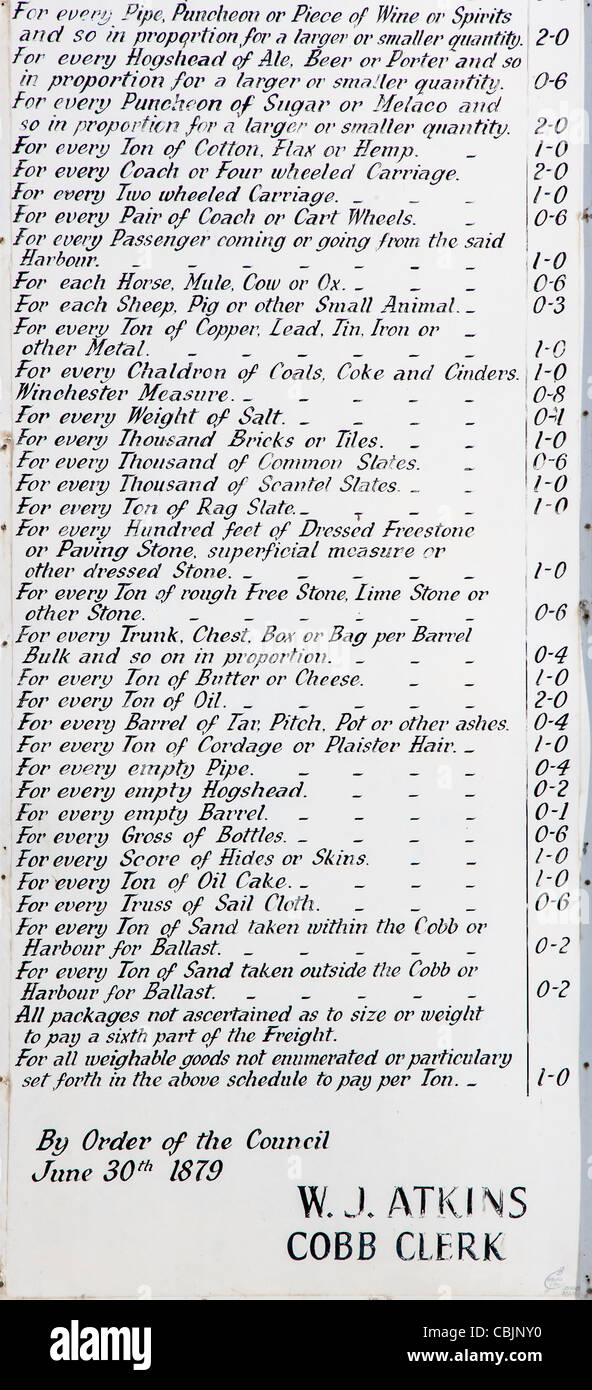 For every Pipe, Puncheon or Piece of Wine or Spirits
and so in proportion for a larger or smaller quantity. 2-0
For every Hogshead of Ale, Beer or Porter and so
in proportion for a larger or smaller quantity. 0-6
For every Puncheon of Sugar or Melaco and
so in proportion for a larger or smaller quantity. 2-0
For every Ton of Cotton, Flax or Hemp. – 1-0
For every Coach or Four wheeled Carriage. 2-0
For every Two wheeled Carriage. – – – 1-0
For every Pair of Coach or Cart Wheels. – 0-6
For every Passenger coming or going from the said
Harbour. – – – – – – – 1-0
For each Horse, Mule, Cow or Ox. – – – 0-6
For each Sheep, Pig or other Small Animal. – 0-3
For every Ton of Copper, Lead, Tin, Iron or –
other Metal. – – – – – – 1-0
For every Chaldron of Coals, Coke and Cinders. 1-0
Winchester Measure. – – – – – 0-8
For every Weight of Salt. – – – – 0-1
For every Thousand Bricks or Tiles. – – 1-0
For every Thousand of Common Slates. – 0-6
For every Thousand of Scantel Slates. – – 1-0
For every Ton of Rag Slate. – – – – 1-0
For every Hundred feet of Dressed Freestone
or Paving Stone, superficial measure or
other dressed Stone. – – – – – 1-0
For every Ton of rough Free Stone, Lime Stone or
other Stone. – – – – – – 0-6
For every Trunk, Chest, Box or Bag per Barrel
Bulk and so on in proportion. – – – 0-4
For every Ton of Butter or Cheese. – – 1-0
For every Ton of Oil. – – – – – 2-0
For every Barrel of Tar, Pitch, Pot or other ashes. 0-4
For every Ton of Cordage or Plaister Hair. – 1-0
For every empty Pipe. – – – – 0-4
For every empty Hogshead. – – – 0-2
For every empty Barrel. – – – – 0-1
For every Gross of Bottles. – – – – 0-6
For every Score of Hides or Skins. – – 1-0
For every Ton of Oil Cake. – – – – 1-0
For every Truss of Sail Cloth. – – – 0-6
For every Ton of Sand taken within the Cobb or
Harbour for Ballast. – – – – – 0-2
For every Ton of Sand taken outside the Cobb or
Harbour for Ballast. – – – – – 0-2
All packages not ascertained as to size or weight
to pay a sixth part of the Freight.
For all weighable goods not enumerated or particulary
set forth in the above schedule to pay per Ton. – 1-0
By Order of the Council
June 30th 1879
W. J. ATKINS
COBB CLERK
alamy
Image ID: CBJNY0
www.alamy.com